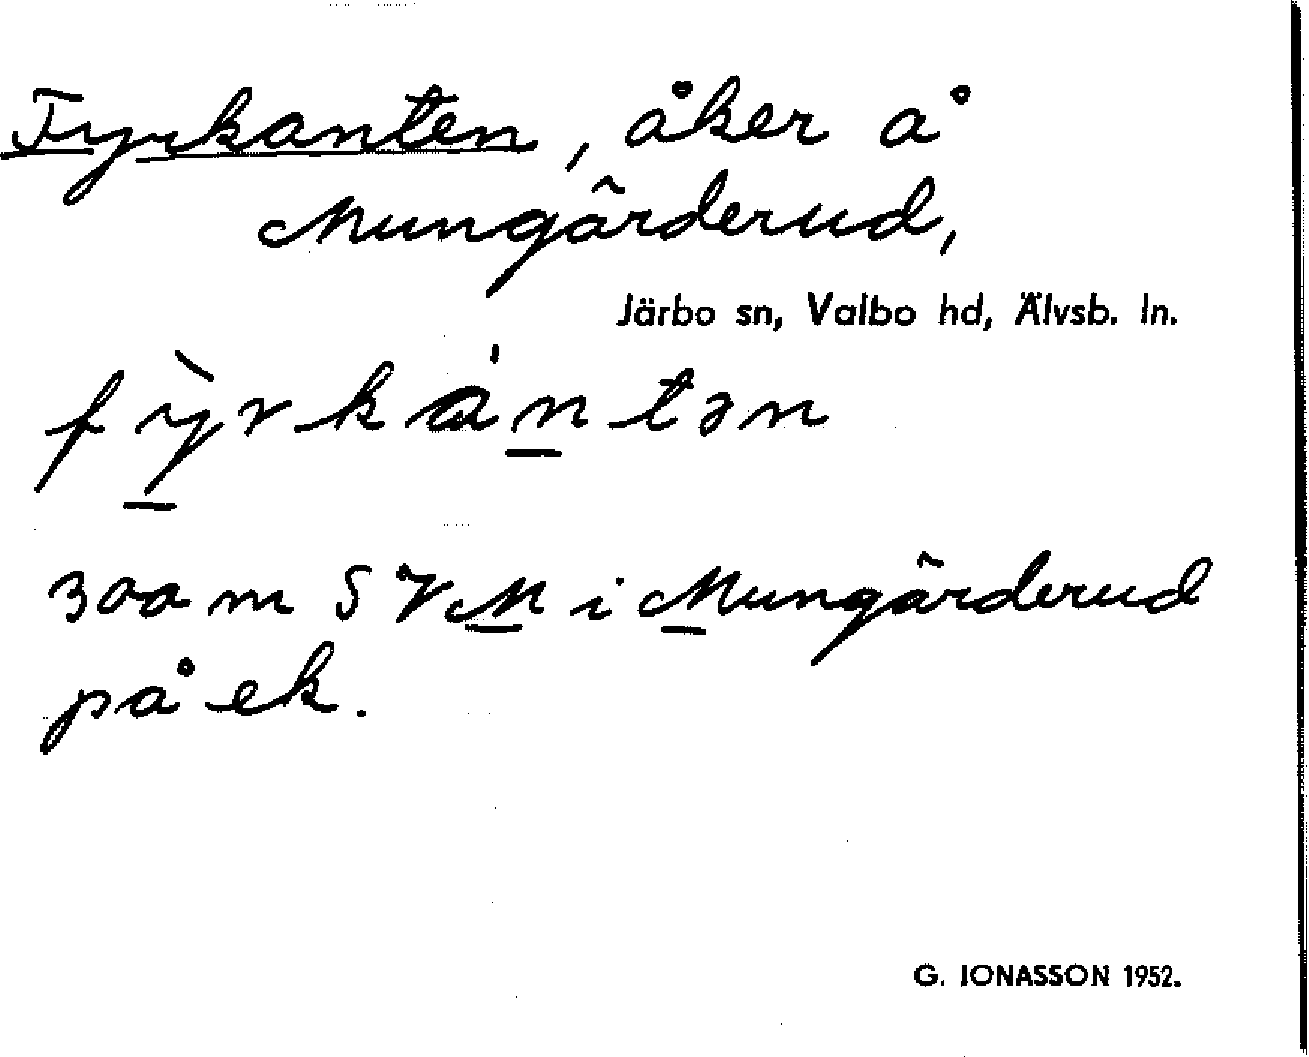 Fyrkanten, åker å
Mungärderud,
Järbo sn, Valbo hd, Älvsb. ln.
fỳ̱rkáṉtən
300 m S V M i Mungärderud
på ek.
G. JONASSON 1952.